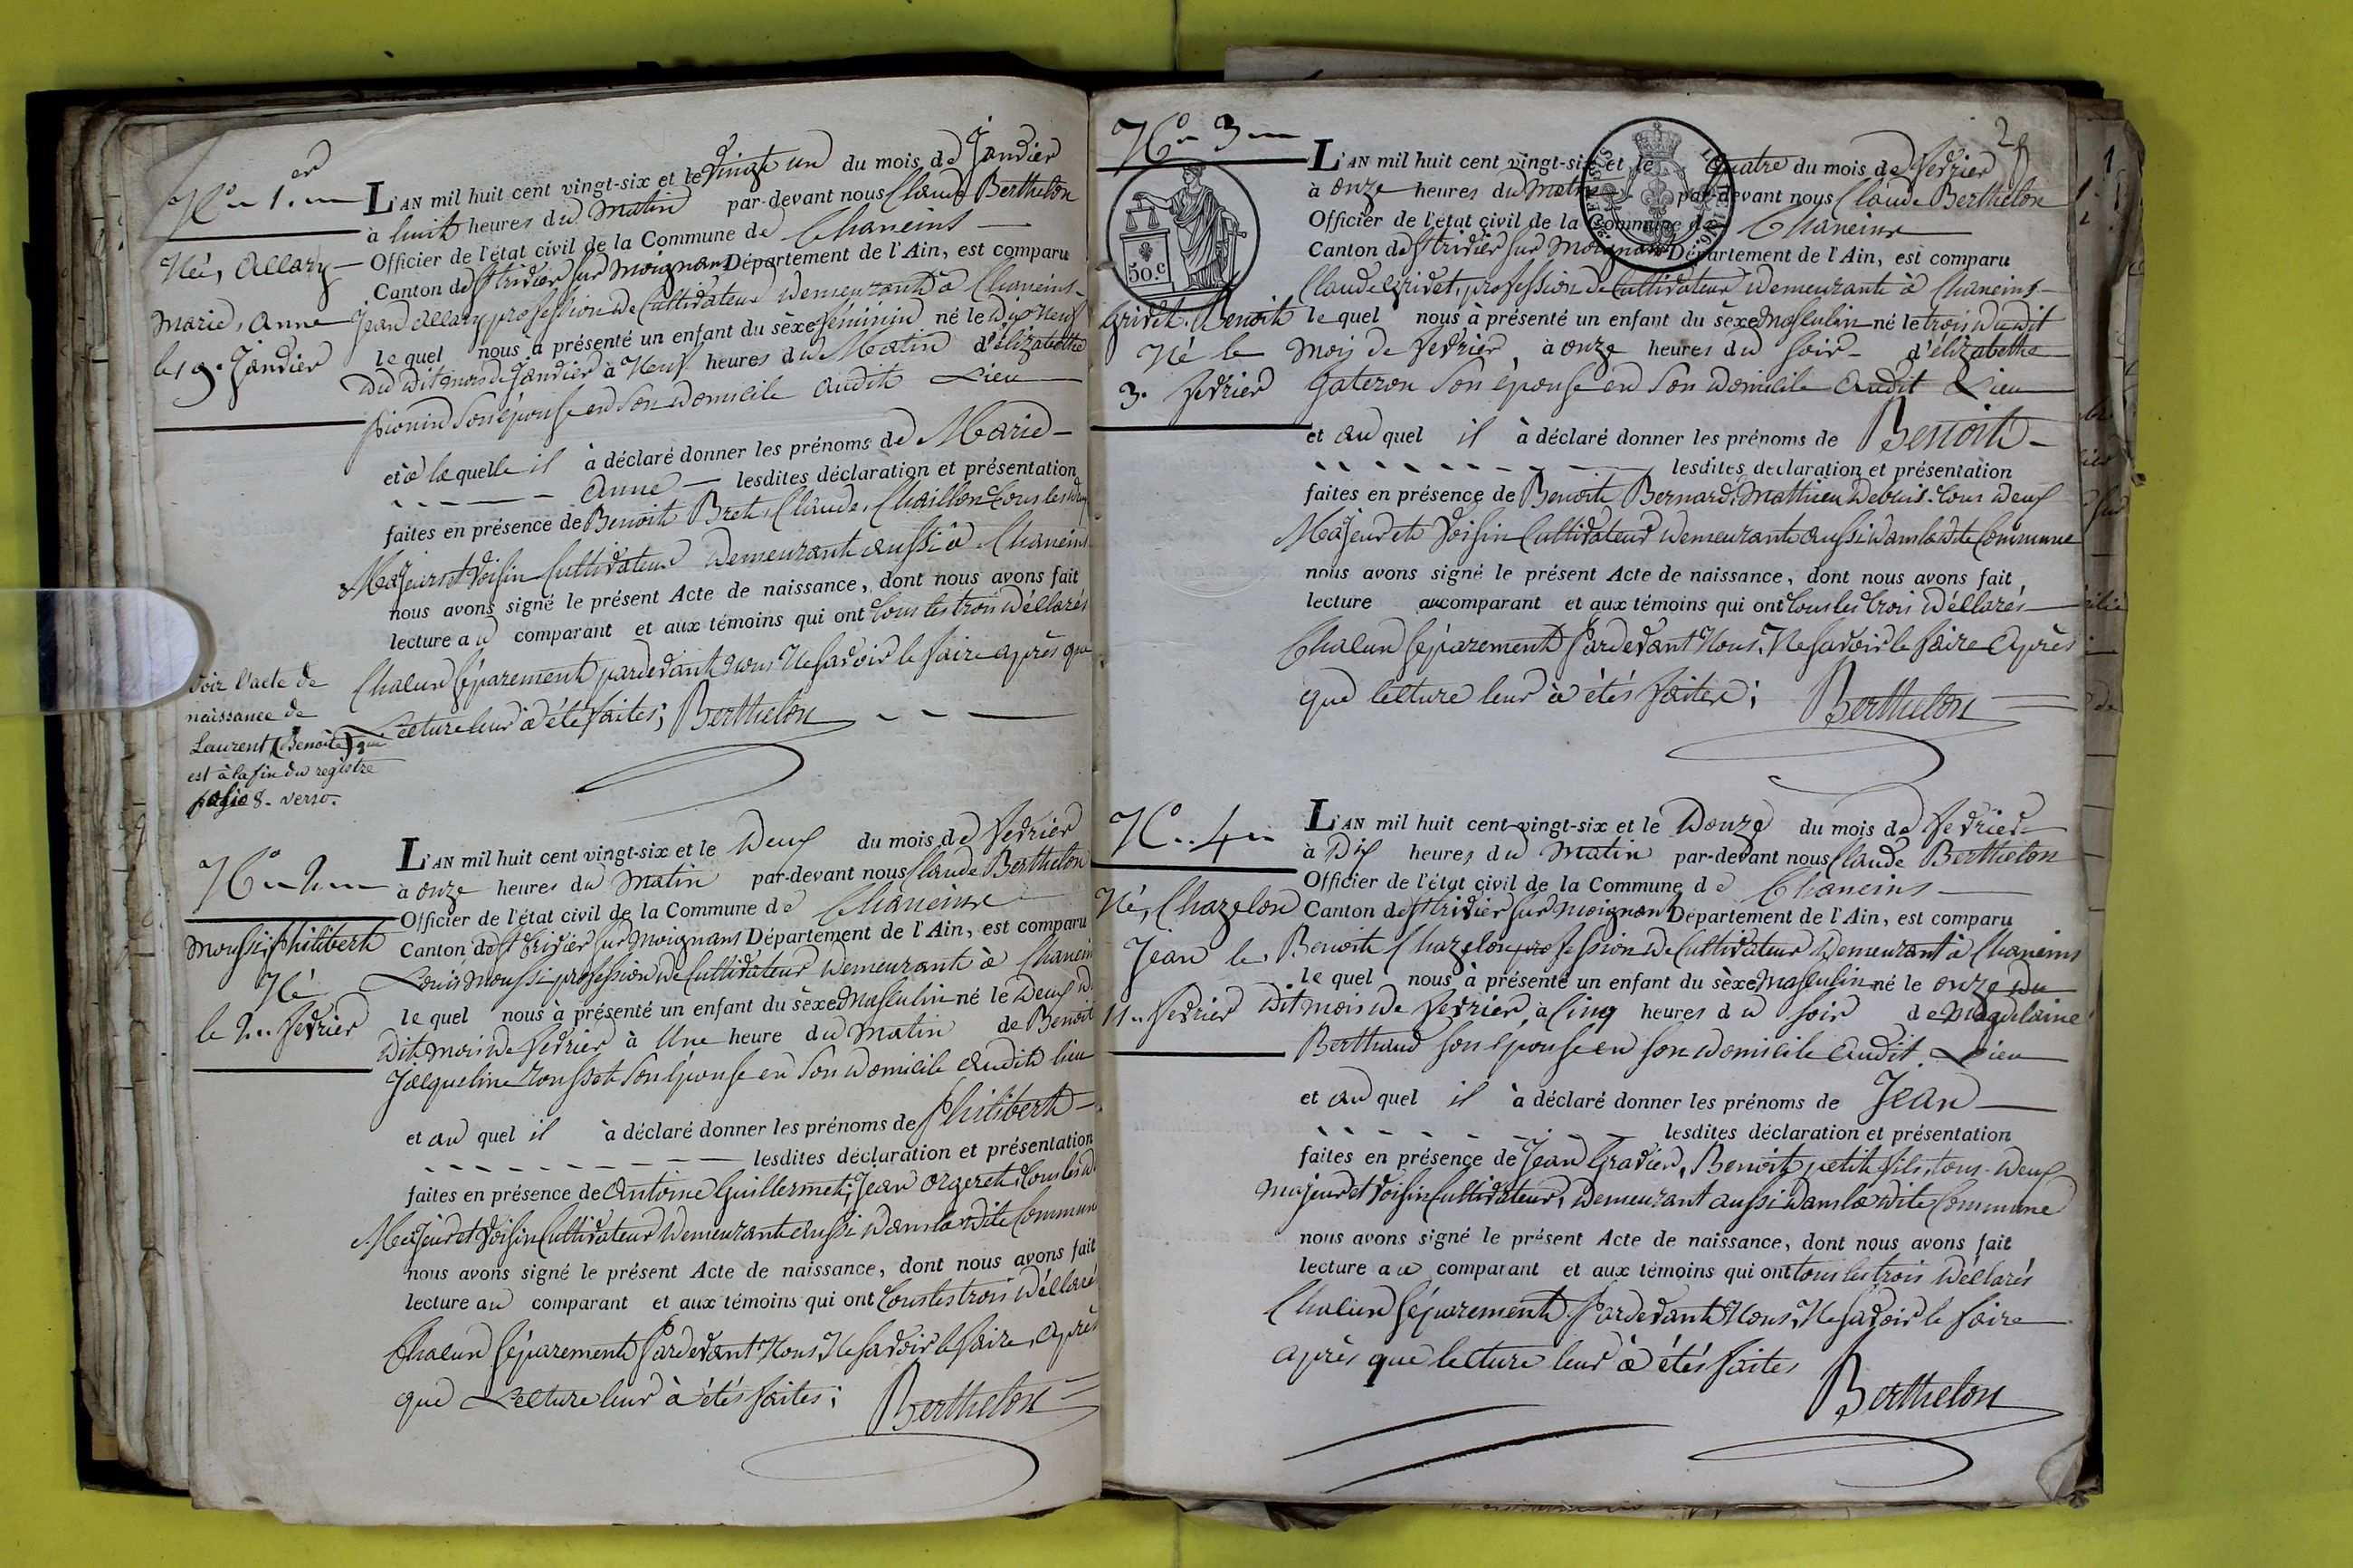 N.o 1.er
Né, Allary
Marie, Anne
le 19. Janvier
L'AN mil huit cent vingt-six et le vingt un du mois de Janvier
à huit heures du Matin par-devant nous Claude Berthelon
Officier de l'état civil de la Commune de Chaneins
Canton de St trivier sur moignans Département de l'Ain, est comparu
Jean Allary profession de Cultivateur demeurant à Chaneins
le quel nous à présenté un enfant du sèxe féminin né le dix neuf
du dit mois de Janvier à Neuf heures du Matin d'élizabethe
pionin son épouse en son domicile audit Lieu
et à la quelle il à déclaré donner les prénoms de Marie
Anne lesdites déclaration et présentation
faites en présence de Benoit Bret, Claude, Chaillon tous les deux
Majeurs et voisin Cultivateur demeurant aussi à Chaneins
nous avons signé le présent Acte de naissance, dont nous avons fait
lecture au comparant et aux témoins qui ont tous les trois déclarés
Chacun séparement pardevant nous Ne savoir le faire après que
Lecture leur à été faites; Berthelon
Voir l'acte de
naissance de
Laurent (Benoîte) qui
est à la fin du registre
folio 8. verso.
N.o 2
Moussi, Philibert
Né
le 2. fevrier
L'AN mil huit cent vingt-six et le Deux du mois de fevrier
à onze heures du Matin par-devant nous Claude Berthelon
Officier de l'état civil de la Commune de Chaneins
Canton de St trivier sur moignans Département de l'Ain, est comparu
Louis Moussi profession de Cultivateur demeurant à Chanein
le quel nous à présenté un enfant du sèxe Masculin né le Deux du
dit mois de fevrier à Une heure du Matin de Benoit
Jacqueline rousset son épouse en son domicile audit lieu
et au quel il à déclaré donner les prénoms de Philibert
lesdites déclaration et présentation
faites en présence de Antoine Guillermet, Jean orgeret, tous les d
Majeur et voisin Cultivateur demeurant aussi dans la dite Commun
nous avons signé le présent Acte de naissance, dont nous avons fait
lecture au comparant et aux témoins qui ont tous les trois déclaré
Chacun séparement Pardevant Nous, Ne savoir le faire, après
que Lecture leur à étés faites; Berthelon
N.o 3
50.c
Grivet, Benoit
Né le
3. fevrier
2
L'AN mil huit cent vingt-six et le quatre du mois de fevrier
à onze heures du Matin par-devant nous Claude Berthelon
Officier de l'état civil de la Commune de Chaneins
Canton de St trivier sur Moignans Département de l'Ain, est comparu
Claude Grivet, profession de Cultivateur demeurant à Chaneins
le quel nous à présenté un enfant du sèxe Masculin né le trois du dit
mois de fevrier, à onze heures du soir d'élizabethe
Gateron son épouse en son domicile audit Lieu
et au quel il à déclaré donner les prénoms de Benoit
lesdites declaration et présentation
faites en présence de Benoit Bernard, Mathieu Debuis. tous deux
Majeur et voisin Cultivateur demeurant aussi dans la dite Commune
nous avons signé le présent Acte de naissance, dont nous avons fait
lecture au comparant et aux témoins qui ont tous les trois déclarés
Chacun séparement Pardevant Nous, Ne savoir le faire Après
que lecture leur à étés faites; Berthelon
N.o 4
Né, Chazelon
Jean le
11. fevrier
L'AN mil huit cent vingt-six et le Douze du mois de fevrier
à Dix heures du Matin par-devant nous Claude Berthelon
Officier de l'état civil de la Commune de Chaneins
Canton de St trivier sur moignans Département de l'Ain, est comparu
Benoit Chazelon profession de Cultivateur demeurant à Chaneins
le quel nous à présenté un enfant du sèxe masculin né le onze du
dit mois de fevrier, à Cinq heures du soir de Magdelaine
Berthaud son épouse en son domicile audit Lieu
et au quel il à déclaré donner les prénoms de Jean
lesdites déclaration et présentation
faites en présence de Jean Gravier, Benoit petit fils, tous deux
majeur et voisin Cultivateur, demeurant aussi dans la dite Commune
nous avons signé le présent Acte de naissance, dont nous avons fait
lecture au comparant et aux témoins qui ont tous les trois déclarés
Chacun séparement Pardevant Nous, Ne savoir le faire
après que lecture leur à étés faites
Berthelon